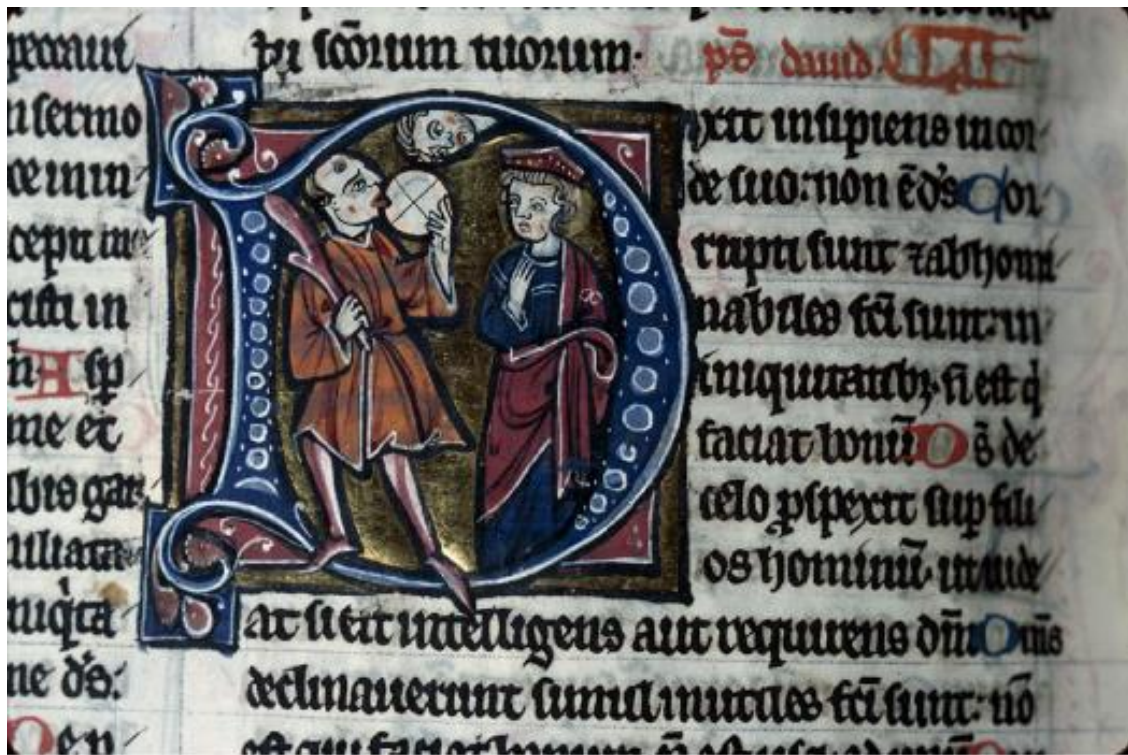 peccaui
n sermo
ce in in
cepit in
cisti in
me et
iliata
niq̇ta
me d̄s:
tui sc̄orum tuorum·
ps̄ dauid·
Dixit insipiens in cor
de suo: non ē d̄s Cor
rupti sunt ⁊ abhomi
nabiles fc̄i sunt: in
iniquitatibꝫ· n̄ est q̇
faciat bonū D s̄ de
celo ꝓspexit sup fili
os hominū· ut uide
at si est intelligens aut requirens dm̄ Om̄s
declinauerunt simul inutiles fc̄i sunt: nō
est qui faciat bonum